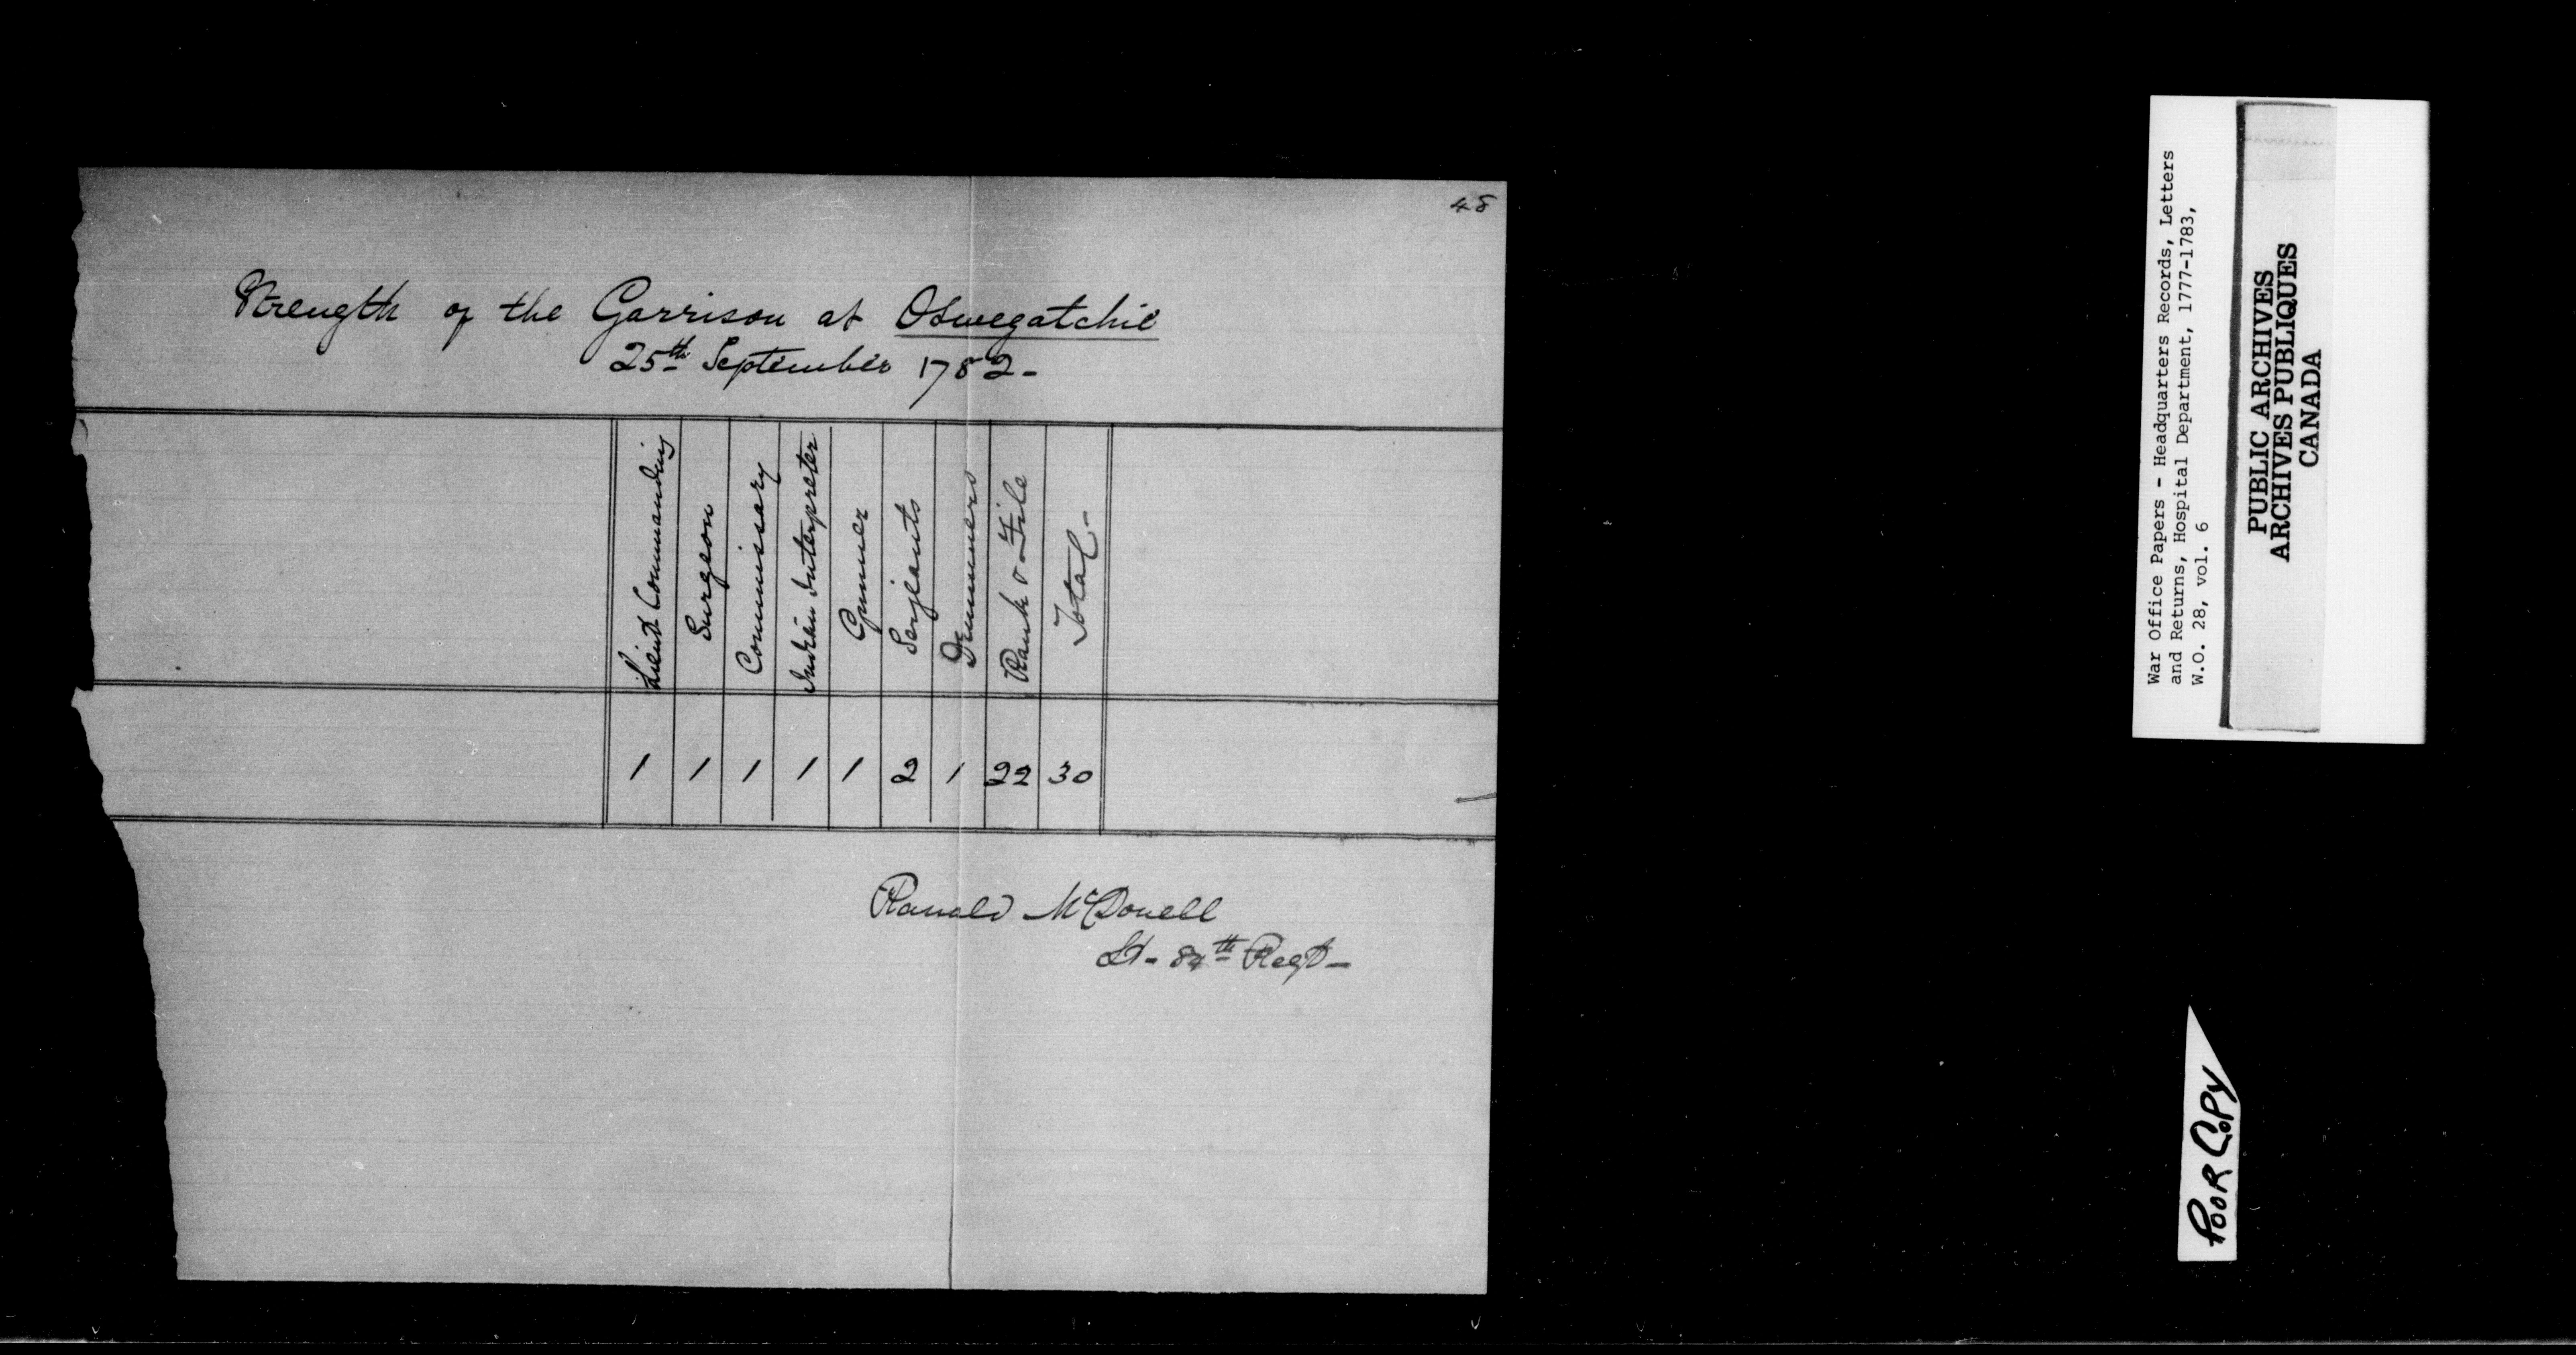 48
Strength of the Garrison at Oswegatchie
25th September 1782-
Lieut Commanding
Surgeon
Commissary
Indian Interpreter
Gunner
Serjeants
Drummers
Rank & File
Total-
1 1 1 1 1 2 1 22 30
Ranald McDonell
Lt- 84th Regt-
War Office Papers - Headquarters Records, Letters
and Returns, Hospital Department, 1777-1783,
W.O. 28, vol. 6
PUBLIC ARCHIVES
ARCHIVES PUBLIQUES
CANADA
POOR COPY